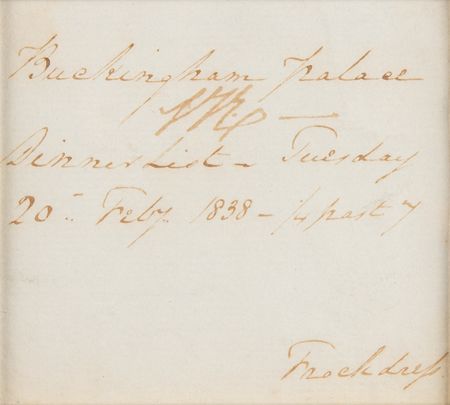 Buckingham Palace
VR —
Dinner List - Tuesday
20th Feby. 1838 - ¼ past 7
Frock dress.